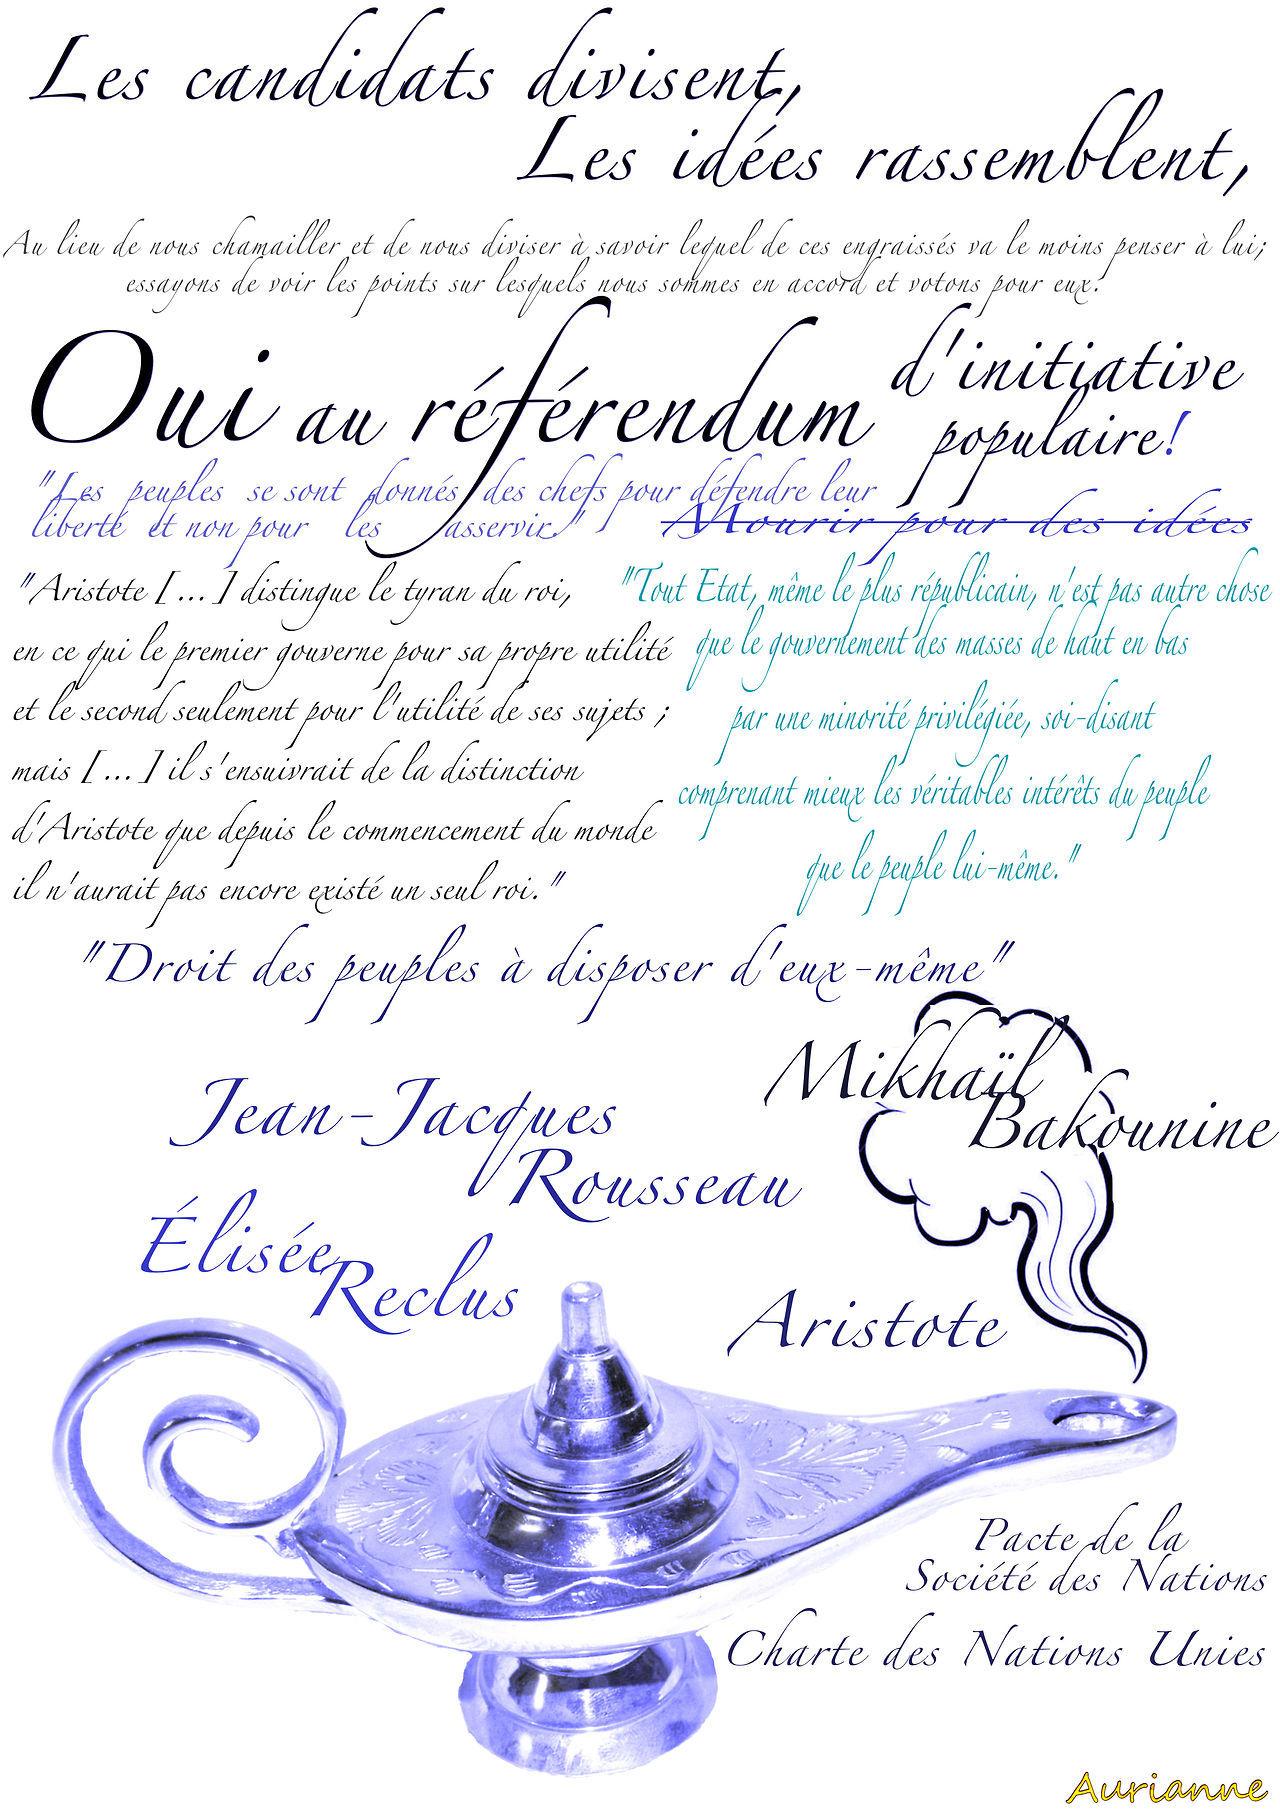 Les candidats divisent,
Les idées rassemblent,
Au lieu de nous chamailler et de nous diviser à savoir lequel de ces engraissés va le moins penser à lui;
essayons de voir les points sur lesquels nous sommes en accord et votons pour eux.
Oui au référendum d'initiative
populaire!
"Les peuples se sont donnés des chefs pour défendre leur
liberté et non pour les asservir."
Mourir pour des idées
"Aristote [ ... ] distingue le tyran du roi,
en ce qui le premier gouverne pour sa propre utilité
et le second seulement pour l'utilité de ses sujets ;
mais [ ... ] il s'ensuivrait de la distinction
d'Aristote que depuis le commencement du monde
il n'aurait pas encore existé un seul roi."
"Tout Etat, même le plus républicain, n'est pas autre chose
que le gouvernement des masses de haut en bas
par une minorité privilégiée, soi-disant
comprenant mieux les véritables intérêts du peuple
que le peuple lui-même."
"Droit des peuples à disposer d'eux-même"
Mikhaïl
Bakounine
Jean-Jacques
Rousseau
Élisée
Reclus
Aristote
Pacte de la
Société des Nations
Charte des Nations Unies
Aurianne